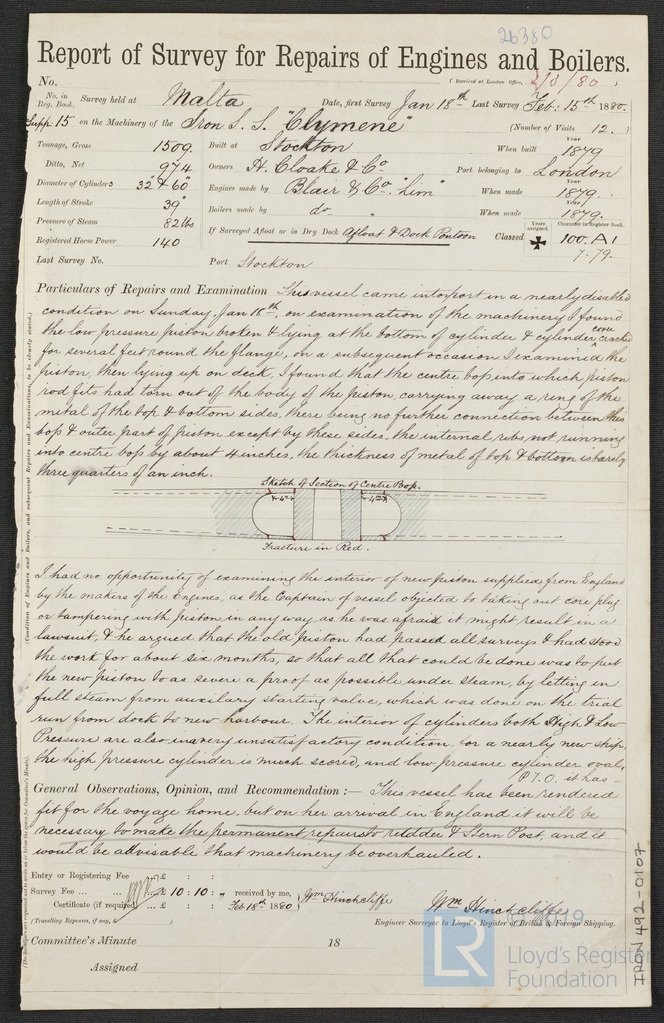 26380
Report of Survey for Repairs of Engines and Boilers.
No.
(Received at London Office, 2/3/80)
No. in Reg. Book. Survey held at Malta Date, first Survey Jan 18th Last Survey Feb. 15th 1880.
Supp. 15 on the Machinery of the Iron S. S. "Clymene" (Number of Visits 12.)
Tonnage, Gross 1509. Built at Stockton When built Year 1879
Ditto, Net 974 Owners H. Cloake & Co. Port belonging to London
Diameter of Cylinders 32" & 60" Engines made by Blair & Co. "Lim" When made Year 1879.
Length of Stroke 39" Boilers made by do " When made Year 1879.
Pressure of Steam 82 lbs If Surveyed Afloat or in Dry Dock Afloat & Dock Pontoon Classed Years assigned. Character in Register Book. ✠ 100. A1
Registered Horse Power 140 7.79.
Last Survey No. Port Stockton
Particulars of Repairs and Examination This vessel came into port in a nearly disabled
condition on Sunday, Jan 18th, on examination of the machinery I found
the low pressure piston broken & lying at the bottom of cylinder & cylinder cover cracked
for several feet round the flange, on a subsequent occasion I examined the
piston, then lying up on deck, I found that the centre boss into which piston
rod fits had torn out of the body of the piston, carrying away a ring of the
metal of the top & bottom sides, there being no further connection between this
boss & outer part of piston except by these sides, the internal ribs not running
into centre boss by about 4 inches, the thickness of metal of top & bottom is barely
three quarters of an inch.
Sketch of Section of Centre Boss.
4" 4"
Fracture in Red.
I had no opportunity of examining the interior of new piston supplied from England
by the makers of the Engines, as the Captain of vessel objected to taking out core plug
or tampering with piston in any way, as he was afraid it might result in a
lawsuit, & he argued that the old piston had passed all surveys & had stood
the work for about six months, so that all that could be done was to put
the new piston to as severe a proof as possible under steam, by letting in
full steam from auxilary starting valve, which was done on the trial
run from dock to new harbour. The interior of cylinders both High & Low
Pressure are also in a very unsatisfactory condition, for a nearly new ship,
the high pressure cylinder is much scored, and low pressure cylinder oval,
P.T.O. it has —
General Observations, Opinion, and Recommendation :— This vessel has been rendered
fit for the voyage home, but on her arrival in England it will be
necessary to make the permanent repairs to rudder & Stern Post, and it
would be advisable that machinery be overhauled.
Entry or Registering Fee £ : :
Survey Fee ... ... £ 10 : 10 : " received by me, Wm Hinchcliffe
Certificate (if required) ... £ : : Feb. 18th 1880
(Travelling Expenses, if any, £ )
Wm Hinchcliffe
Engineer Surveyor to Lloyd's Register of British & Foreign Shipping.
Committee's Minute 18
Assigned
IRON 492-0107
LR
Lloyd's Register
Foundation